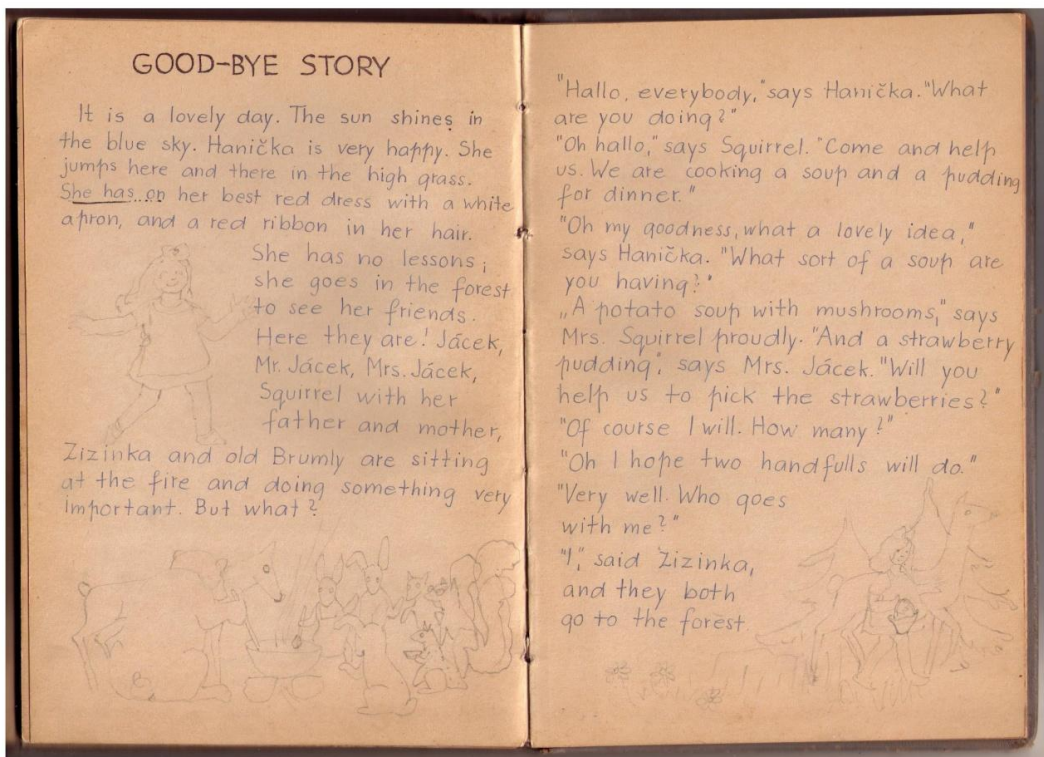 GOOD-BYE STORY
It is a lovely day. The sun shines in
the blue sky. Hanička is very happy. She
jumps here and there in the high grass.
She has on her best red dress with a white
apron, and a red ribbon in her hair.
She has no lessons;
she goes in the forest
to see her friends.
Here they are! Jácek,
Mr. Jácek, Mrs. Jácek,
Squirrel with her
father and mother,
Zizinka and old Brumly are sitting
at the fire and doing something very
important. But what?
"Hallo, everybody," says Hanička. "What
are you doing?"
"Oh hallo," says Squirrel. "Come and help
us. We are cooking a soup and a pudding
for dinner."
"Oh my goodness, what a lovely idea,"
says Hanička. "What sort of a soup are
you having?"
„A potato soup with mushrooms," says
Mrs. Squirrel proudly. "And a strawberry
pudding", says Mrs. Jácek. "Will you
help us to pick the strawberries?"
"Of course I will. How many?"
"Oh I hope two handfulls will do."
"Very well. Who goes
with me?"
"I," said Zizinka,
and they both
go to the forest